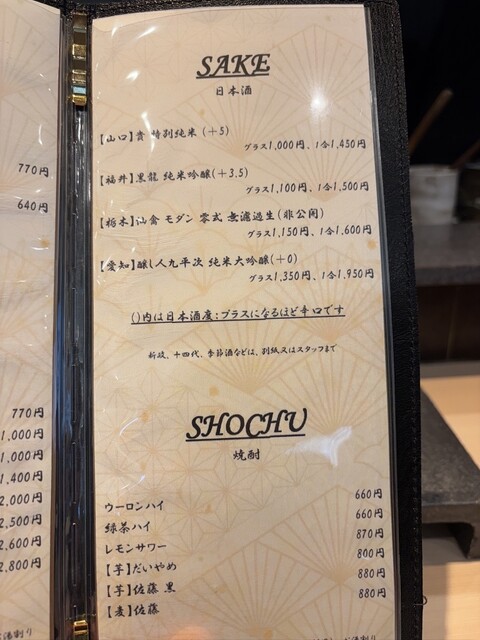 770円
640円
770円
1,000円
1,000円
1,400円
2,000円
2,500円
2,600円
2,800円
SAKE
日本酒
【山口】貴 特別純米（＋5）
グラス1,000円、1合1,450円
【福井】黒龍 純米吟醸（＋3.5）
グラス1,100円、1合1,500円
【栃木】仙禽 モダン 零式 無濾過生（非公開）
グラス1,150円、1合1,600円
【愛知】醸し人九平次 純米大吟醸（＋0）
グラス1,350円、1合1,950円
()内は日本酒度：プラスになるほど辛口です
新政、十四代、季節酒などは、別紙又はスタッフまで
SHOCHU
焼酎
ウーロンハイ 660円
緑茶ハイ 660円
レモンサワー 870円
【芋】だいやめ 800円
【芋】佐藤 黒 880円
【麦】佐藤 880円